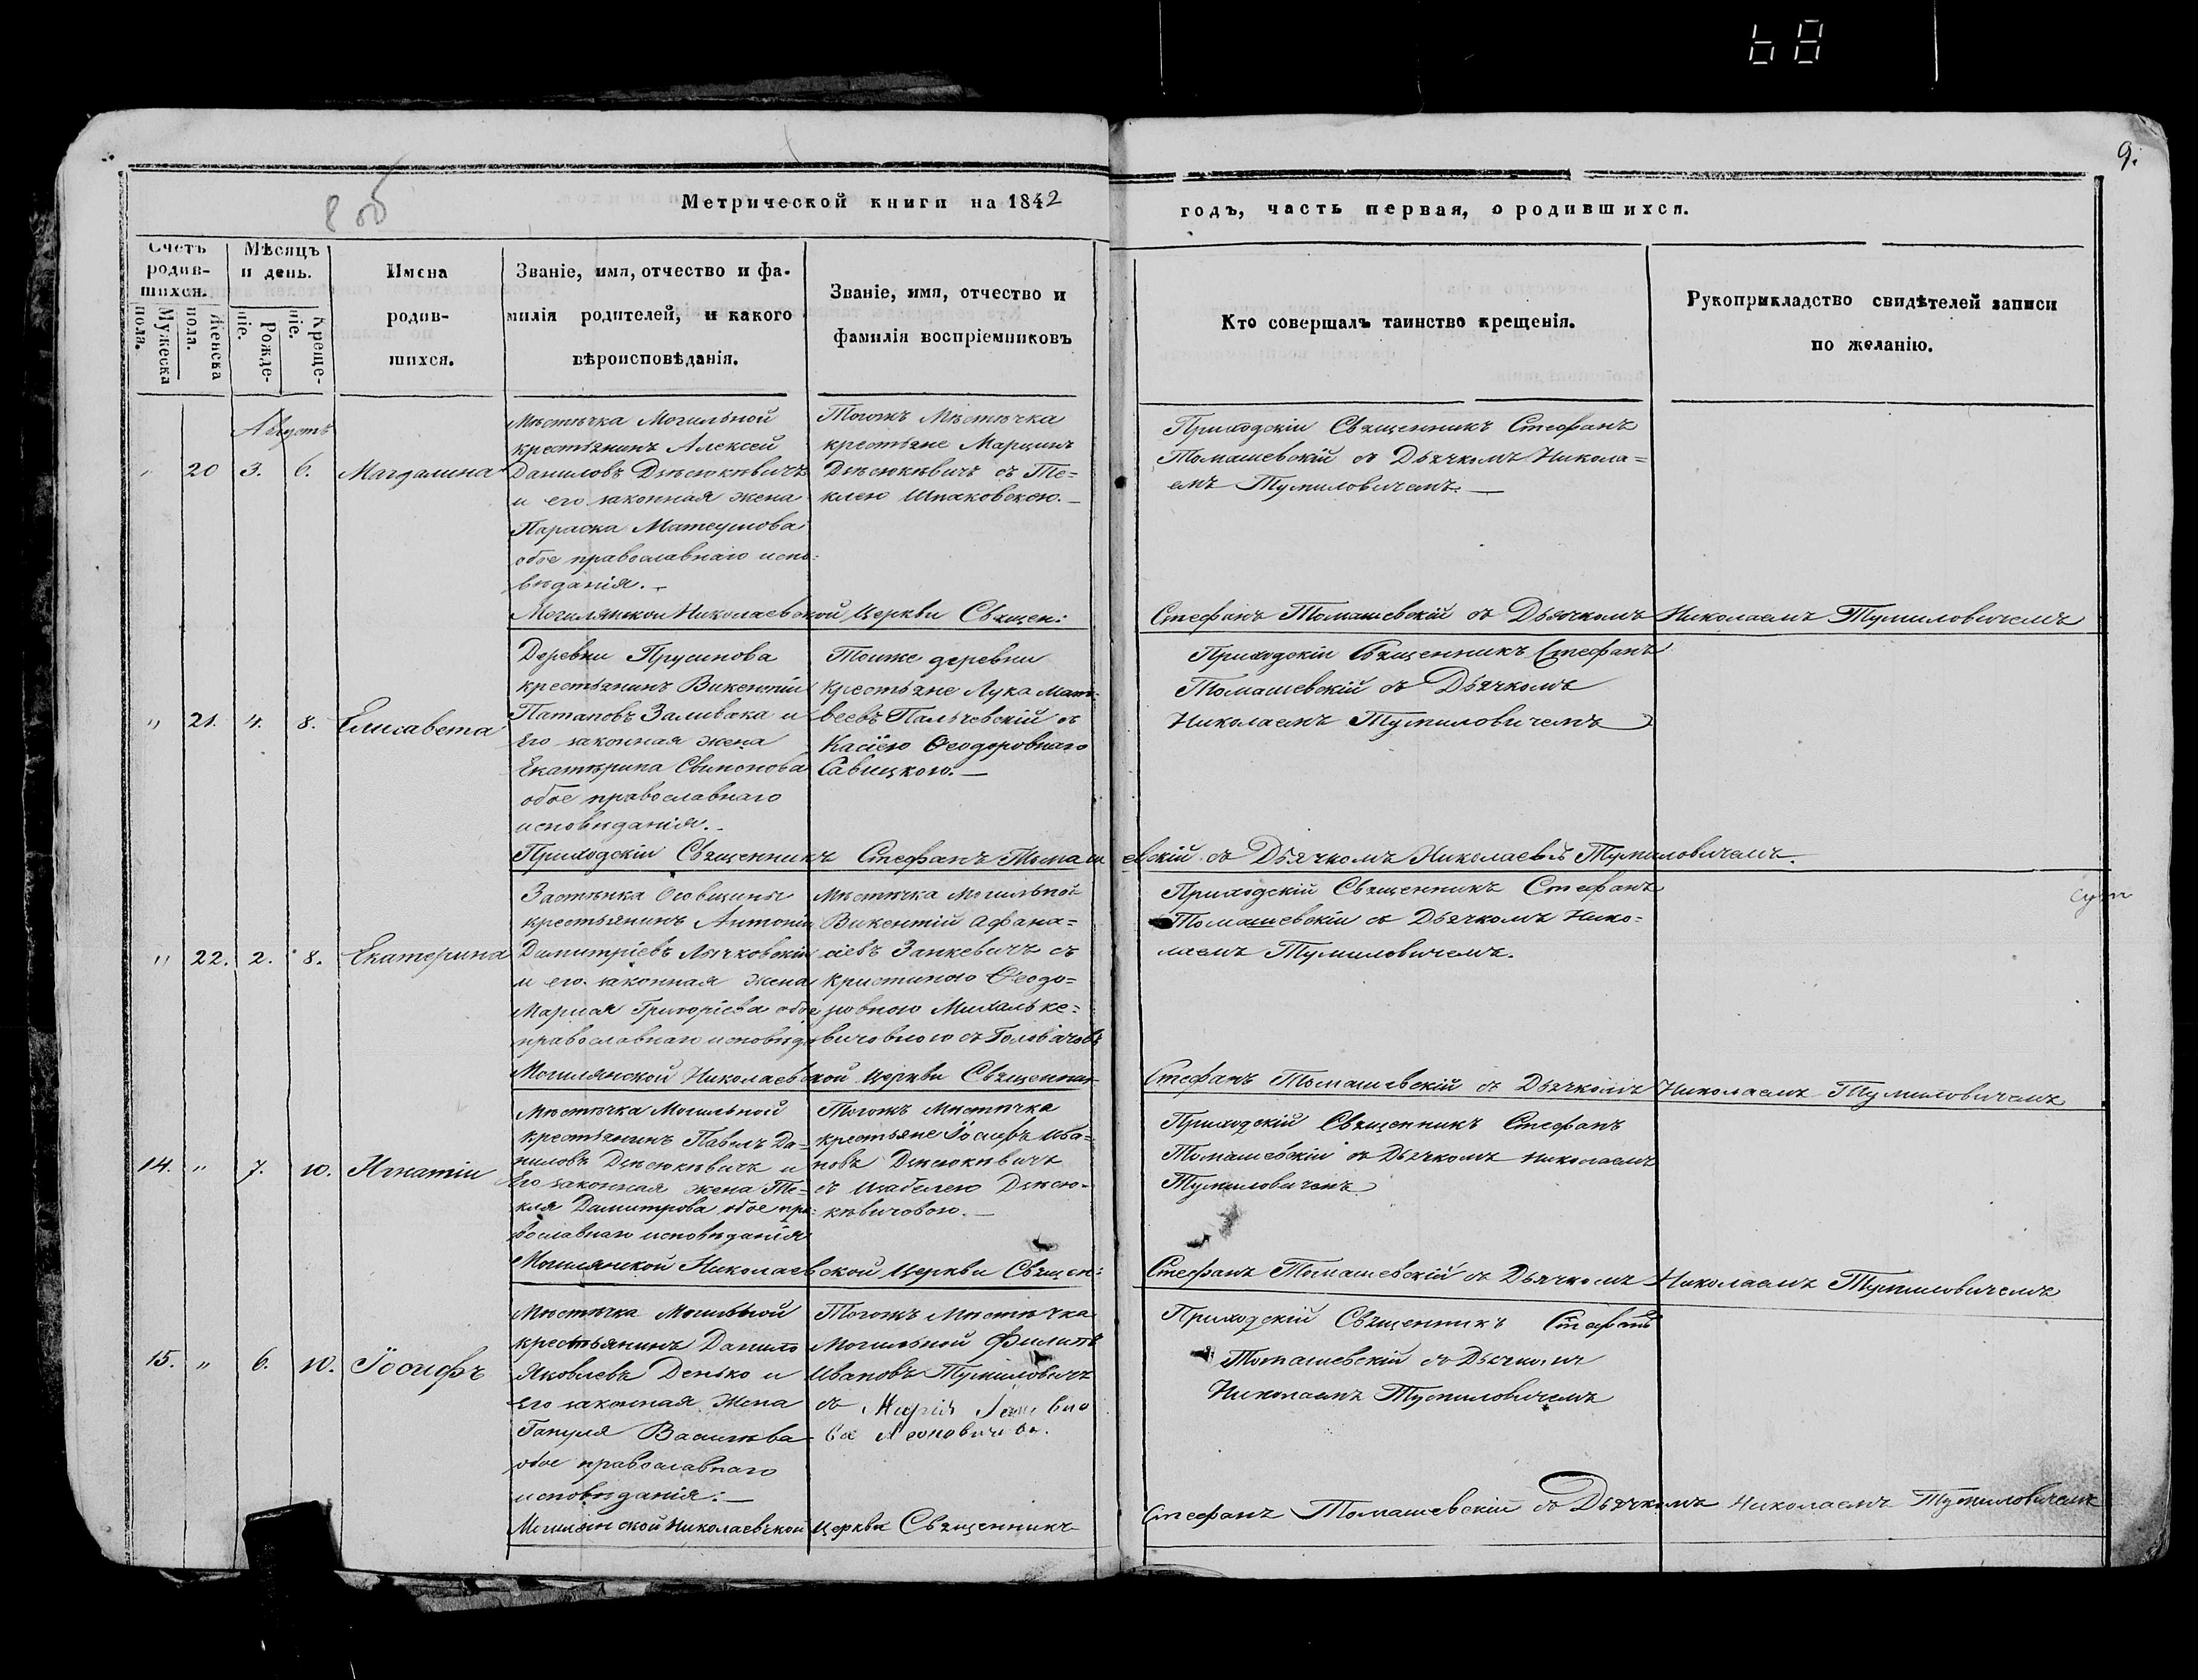 9.
8 об
Метрической книги на 1842
годъ, часть первая, о родившихся.
Счетъ родив-шихся.
Мужеска пола.
Женска пола.
Мѣсяцъ и день.
Рожде-ніе.
Креще-ніе.
Имена
родив-
шихся.
Званіе, имя, отчество и фа-
милія родителей, и какого
вѣроисповѣданія.
Званіе, имя, отчество и
фамилія воспріемниковъ
Кто совершалъ таинство крещенія.
Рукоприкладство свидѣтелей записи
по желанію.
Августъ
" 20 3. 6. Магдалина
Мѣстѣчка Могильной
крестьянинъ Алексей
Даниловъ Дѣксюкѣвичъ
и его законная жена
Параска Матеушова
обое православнаго испо-
вѣданія.
Тогожъ Мѣстѣчка
крестьяне Марцинъ
Дѣксюкѣвичъ съ Те=
клею Шпаковскою.
Приходскій Священникъ Стефанъ
Томашевскій съ Дьячкомъ Никола=
емъ Тумиловичемъ.
Могилянской Николаевской Церкви Священ: Стефанъ Томашевскій съ Дьячкомъ Николаемъ Тумиловичемъ
" 21. 4. 8. Елисавета
Деревни Прусинова
крестьянинъ Викентій
Патаповъ Заливака и
его законная жена
Екатѣрина
обое православнаго
исповѣданія.
Тоиже деревни
крестьяне Лука Мат-
веевъ Пальчевскій съ
Касіею Ѳеодоровнаго
Савицкою.
Приходскій Священникъ Стефанъ
Томашевскій съ Дьячкомъ
Николаемъ Тумиловичемъ
Приходскій Священникъ Стефанъ Томашевскій съ Дьячкомъ Николаемъ Тумиловичемъ.
" 22. 2. 8. Екатерина
Застѣнка Осовщины
крестьянинъ Антоній
Димитріевъ Лычковскій
и его законная жена
Мария Григоріева обое
православнаго исповѣда
Мѣстѣчка Могильной
Викентій Афана=
сіевъ Занкевичъ съ
Кристиною Ѳеодо=
ровною Михальке=
вичовною съ
Приходскій Священникъ Стефанъ
Томашевскій съ Дьячкомъ Нико=
лаемъ Тумиловичемъ.
Могилянской Николаевской Церкви Священникъ Стефанъ Томашевскій съ Дьячкомъ Николаемъ Тумиловичемъ
14. " 7. 10. Игнатій
Мѣстѣчка Могильной
крестьянинъ Павелъ Да-
ниловъ Дѣксюкѣвичъ и
его законная жена Те-
кля Димитрова обое пра-
вославнаго исповѣданія
Тогожъ Мѣстѣчка
крестьяне Іосифъ Ива=
новъ Дѣксюкѣвичъ
съ Изабелею Дѣксю-
кѣвичовою.
Приходскій Священникъ Стефанъ
Томашевскій съ Дьячкомъ Николаемъ
Тумиловичемъ
Могилянской Николаевской Церкви Священ: Стефанъ Томашевскій съ Дьячкомъ Николаемъ Тумиловичемъ
15. " 6. 10. Іосифъ
Мѣстѣчка Могильной
крестьянинъ Данило
Яковлевъ Денько и
его законная жена
Гапуля Василѣва
обое православнаго
исповѣданія.
Тогожъ Мѣстѣчка
Могильной Филипъ
Ивановъ Тумиловичъ
съ
Приходскій Священникъ Стефанъ
Томашевскій съ Дьячкомъ
Николаемъ Тумиловичемъ
Могилянской Николаевской Церкви Священникъ Стефанъ Томашевскій съ Дьячкомъ Николаемъ Тумиловичемъ